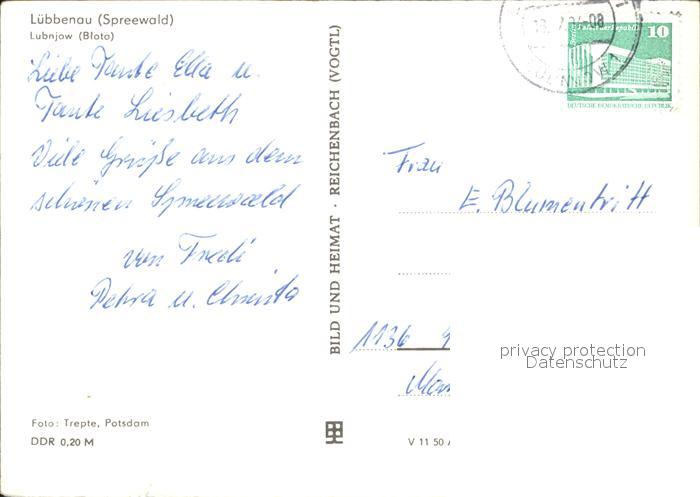 Lübbenau (Spreewald)
Lubnjow (Błota)
Liebe Tante Ella u.
Tante Liesbeth
Viele Grüße aus dem
schönen Spreewald
von Fredi
Petra u. Christa
Foto: Trepte, Potsdam
DDR 0,20 M
BILD UND HEIMAT · REICHENBACH (VOGTL)
10
DEUTSCHE DEMOKRATISCHE REPUBLIK
Frau
E. Blumentritt
1136
privacy protection
Datenschutz
V 11 50